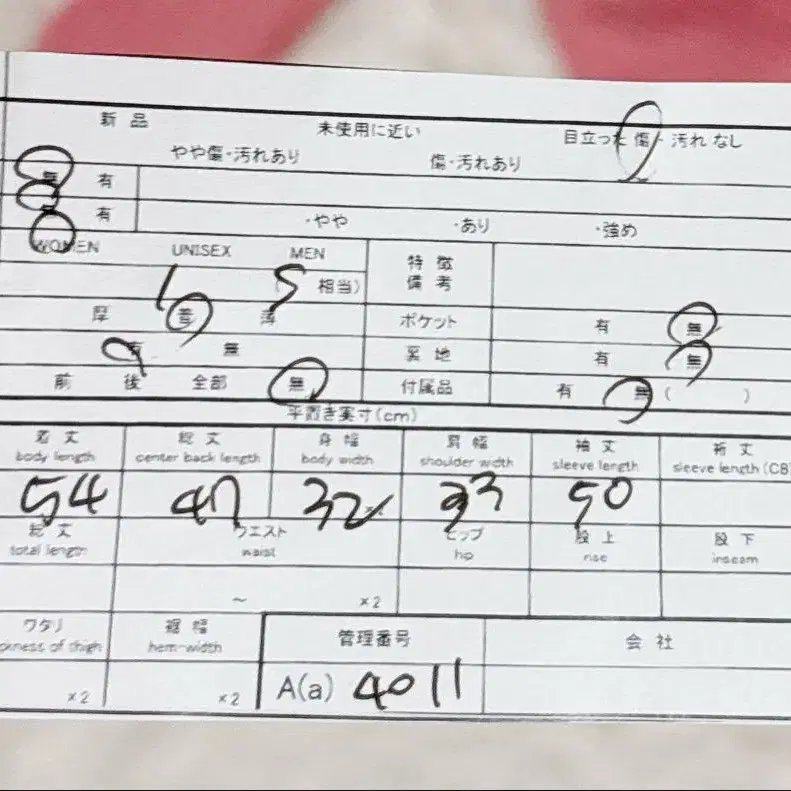 新品 未使用に近い 目立った傷・汚れなし
やや傷・汚れあり 傷・汚れあり
無 有
有 ・やや ・あり ・強め
WOMEN UNISEX MEN 特徴
備考
S 相当)
厚 普 薄 ポケット 有 無
有 無 裏地 有 無
前 後 全部 無 付属品 有 無 ( )
平置き実寸(cm)
着丈 総丈 身幅 肩幅 袖丈 裄丈
body length center back length body width shoulder width sleeve length sleeve length(CB
54 47 32 33 50
総丈 ウエスト ヒップ 股上 股下
total length waist hip rise inseam
~ ×2
ワタリ 裾幅 管理番号 会社
ckness of thigh hem-width
×2 ×2 A(a) 4011